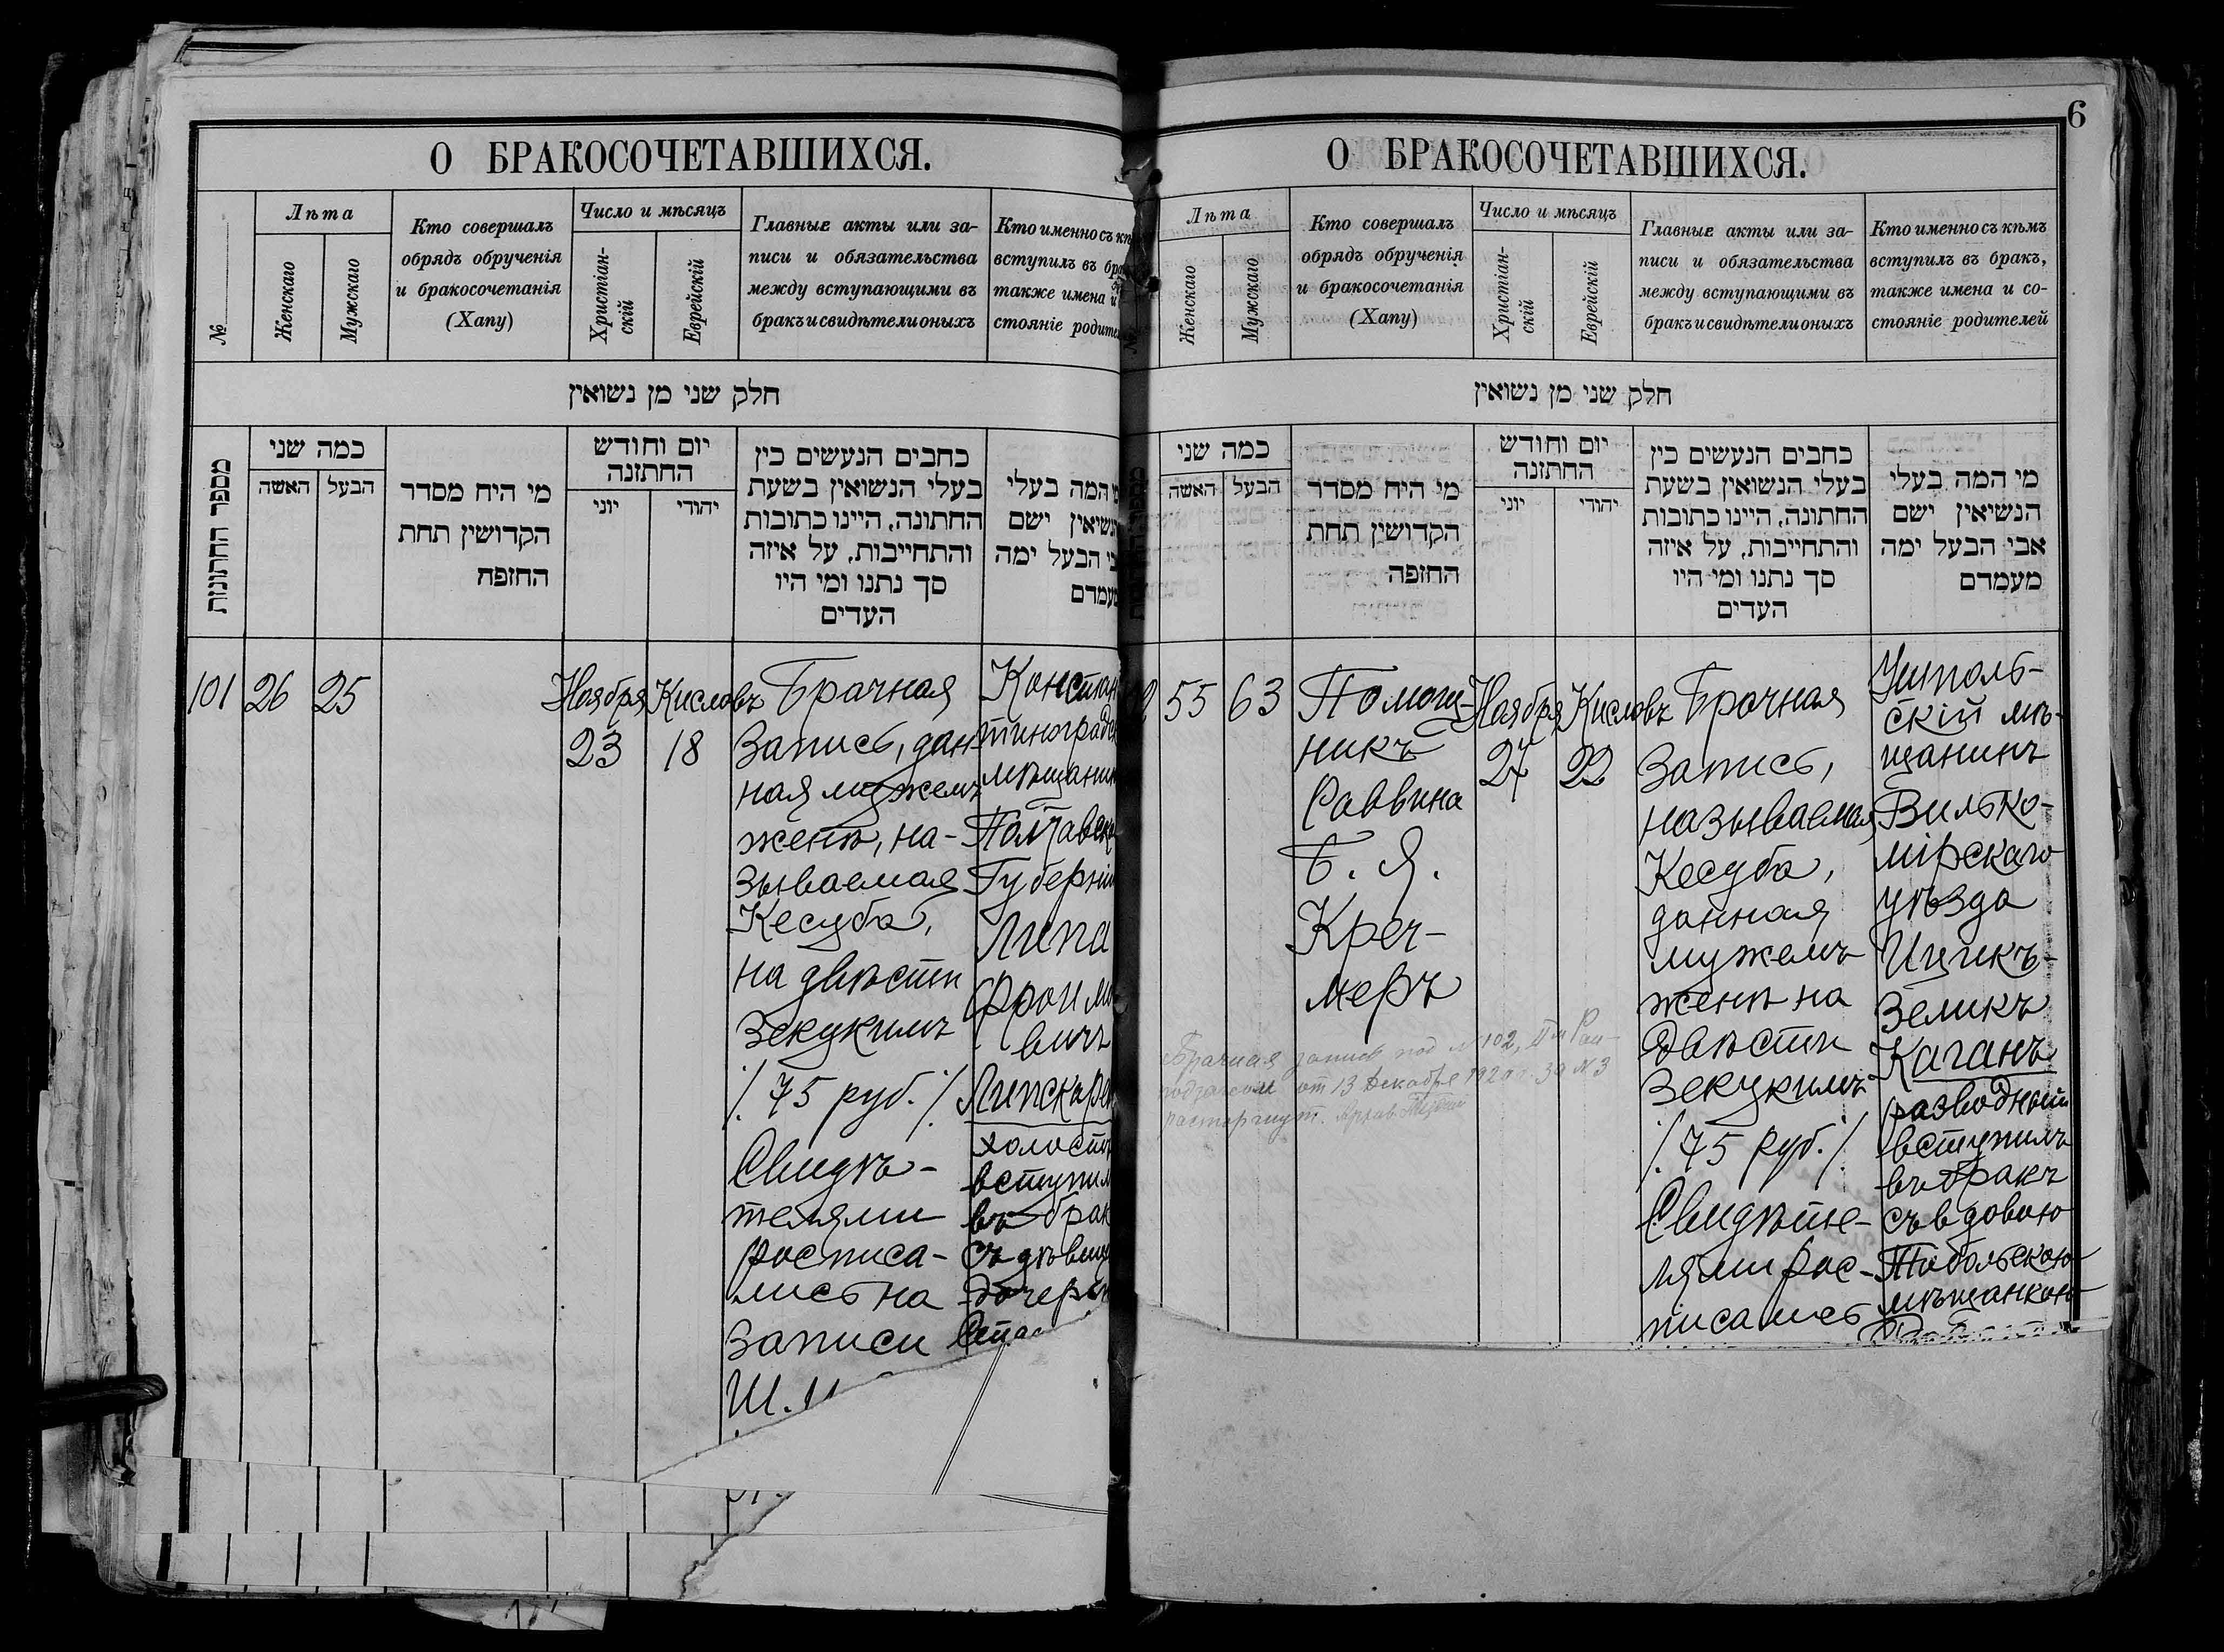 О БРАКОСОЧЕТАВШИХСЯ.
№
Лѣта
Женскаго
Мужскаго
Кто совершалъ
обрядъ обрученія
и бракосочетанія
(Хапу)
Число и мѣсяцъ
Христіан-
скій
Еврейскій
Главные акты или за-
писи и обязательства
между вступающими въ
бракъ и свидѣтели оныхъ
Кто именно съ кѣ
вступилъ въ бра
также имена и
стояніе родител
חלק שני מן נשואין
מספר החתונות
כמה שני
האשה
הבעל
מי היח מסדר
הקדושין תחת
החזפח
יום וחודש
החתזנה
יוני
יהודי
כחבים הנעשים כין
בעלי הנשואין בשעת
החתונה, היינו כתובות
והתחייבות, על איזה
סך נתנו ומי היו
העדים
המה בעלי
נשיאין ישם
בי הבעל ימה
מעמדם
101
26
25
Ноября
23
Кисловъ
18
Брачная
Запись, дан-
ная мужемъ
женѣ, на-
зываемая
Кесуба,
на двѣсти
Зекукимъ
/. 75 руб. /.
Свидѣ-
телями
росписа-
лись на
записи
Ш.
Констан
тиноградск
мѣщанин
Полтавско
Губерніи
Липа
Фроимо
вичъ
Липскаре
холостъ
вступил
въ брак
съ дѣвиц
дочерью
О БРАКОСОЧЕТАВШИХСЯ.
6
Лѣта
Женскаго
Мужскаго
Кто совершалъ
обрядъ обрученія
и бракосочетанія
(Хапу)
Число и мѣсяцъ
Христіан-
скій
Еврейскій
Главные акты или за-
писи и обязательства
между вступающими въ
бракъ и свидѣтели оныхъ
Кто именно съ кѣмъ
вступилъ въ бракъ,
также имена и со-
стояніе родителей
חלק שני מן נשואין
כמה שני
האשה
הבעל
מי היח מסדר
הקדושין תחת
החזפה
יום וחודש
החתזנה
יוני
יהודי
כחבים הנעשים כין
בעלי הנשואין בשעת
החתונה, היינו כתובות
והתחייבות, על איזה
סך נתנו ומי היו
העדים
מי המה בעלי
הנשיאין ישם
אבי הבעל ימה
מעמדם
2
55
63
Помощ-
никъ
Раввина
Б. Я.
Креч-
меръ
Ноября
27
Кисловъ
22
Брачная
Запись,
называемая
Кесуба,
данная
мужемъ
женѣ на
двѣсти
Зекукимъ
/. 75 руб. /.
Свидѣте-
лями рос-
писались
Ушполь-
скій мѣ-
щанинъ
Вилько-
мірскаго
уѣзда
Ицикъ-
Зеликъ
Каганъ
разводный
вступилъ
въ бракъ
съ вдовою
Тобольскою
мѣщанкою
Брачная запись под № 102,
от 13 Декабря 192 за № 3
расторгнут.